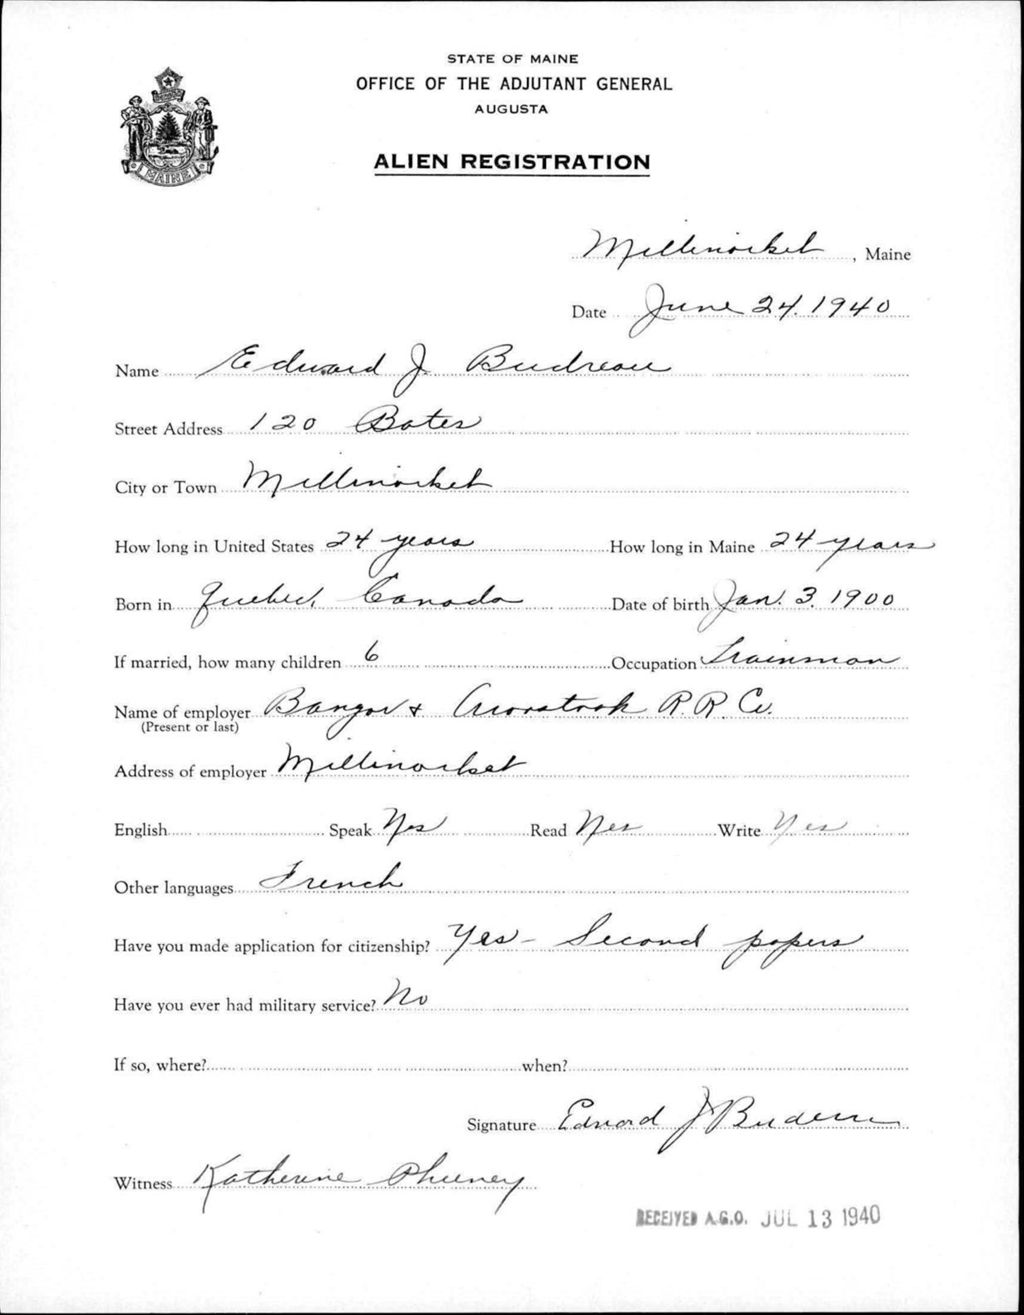 STATE OF MAINE
OFFICE OF THE ADJUTANT GENERAL
AUGUSTA
MAINE
ALIEN REGISTRATION
Millinocket, Maine
Date June 24, 1940
Name Edward J. Budreau
Street Address 120 Bates
City or Town Millinocket
How long in United States 24 years How long in Maine 24 years
Born in Quebec, Canada Date of birth Jan. 3, 1900
If married, how many children 6 Occupation Trainman
Name of employer Bangor & Aroostook R.R. Co.
(Present or last)
Address of employer Millinocket
English Speak Yes Read Yes Write Yes
Other languages French
Have you made application for citizenship? Yes - Second papers
Have you ever had military service? No
If so, where? when?
Signature Edward J Budreau
Witness Katherine Pheeney
RECEIVED A.G.O. JUL 13 1940